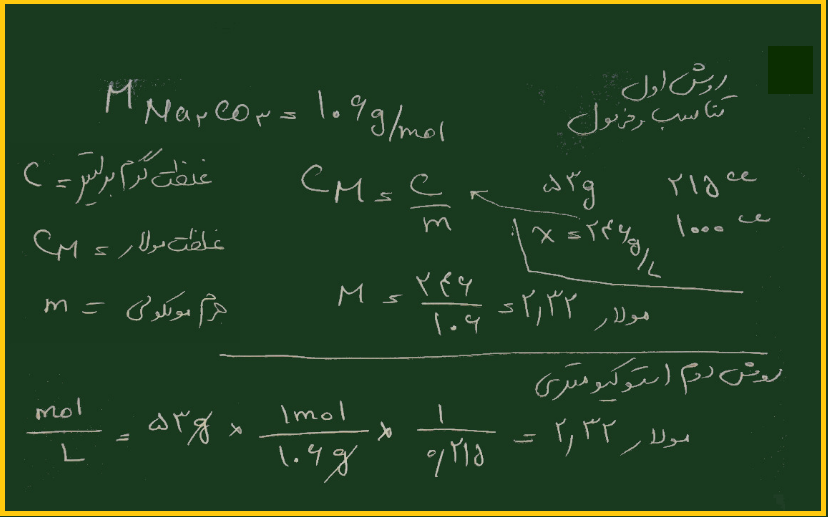 روش اول
تناسب و فرمول
M Na₂CO₃ = ۱۰۶ g/mol
۵۳g ۲۱۵ cc
x = ۲۴۶ g/L ۱۰۰۰ cc
C_M = C/m
M = ۲۴۶/۱۰۶ = ۲,۳۲ مولار
C = غلظت گرم بر لیتر
C_M = غلظت مولار
m = جرم مولکولی
روش دوم استوکیومتری
mol/L = ۵۳g × 1mol/۱۰۶g × 1/۰,۲۱۵ = ۲,۳۲ مولار